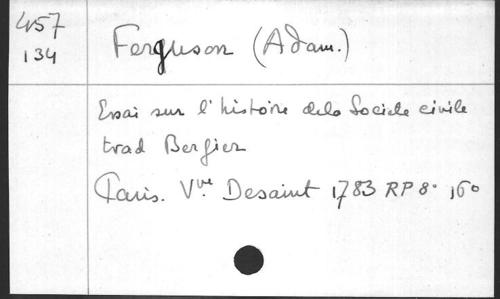 457
134
Ferguson (Adam.)
Essai sur l'histoire dela Societe civile
trad Bergier
Paris. Vve Desaint 1783 RP 8° 16°